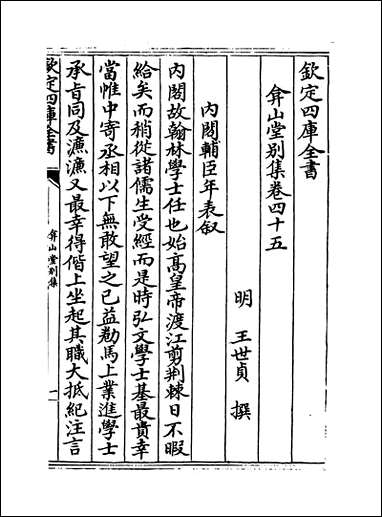 欽定四庫全書
弇山堂别集卷四十五
明 王世貞 撰
內閣輔臣年表叙
內閣故翰林學士任也始高皇帝渡江剪荆棘日不暇
給矣而稍從諸儒生受經而是時弘文學士基最貴幸
當惟中寄丞相以下無敢望之已益勌馬上業進學士
承旨同及濂濂又最幸得偕上坐起其職大抵紀注言
欽定四庫全書
弇山堂别集
一